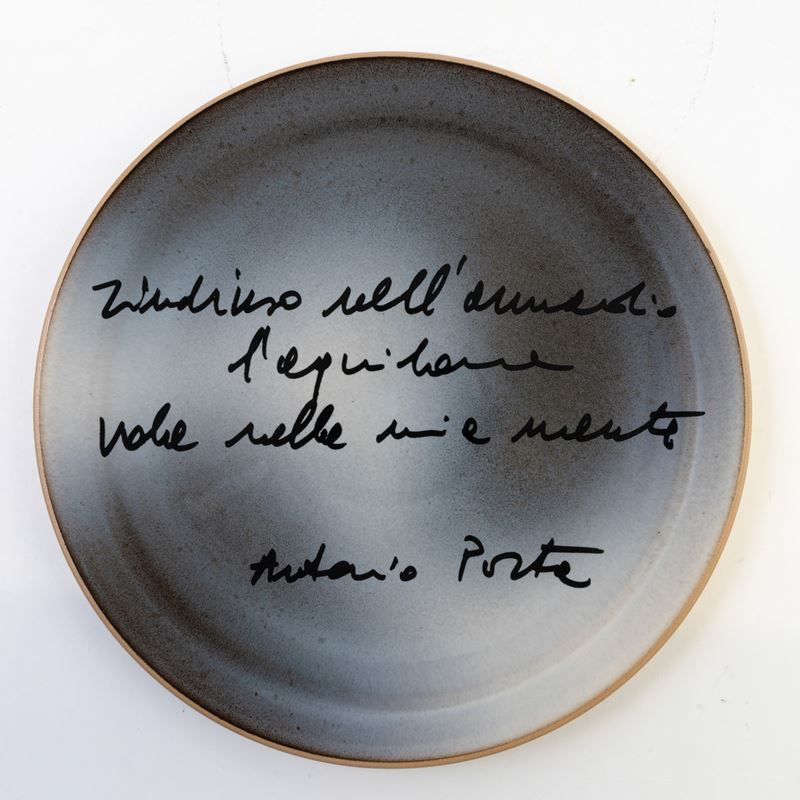 rinchiuso nell'armadio
l'aquilone
vola nella mia mente
Antonio Porta